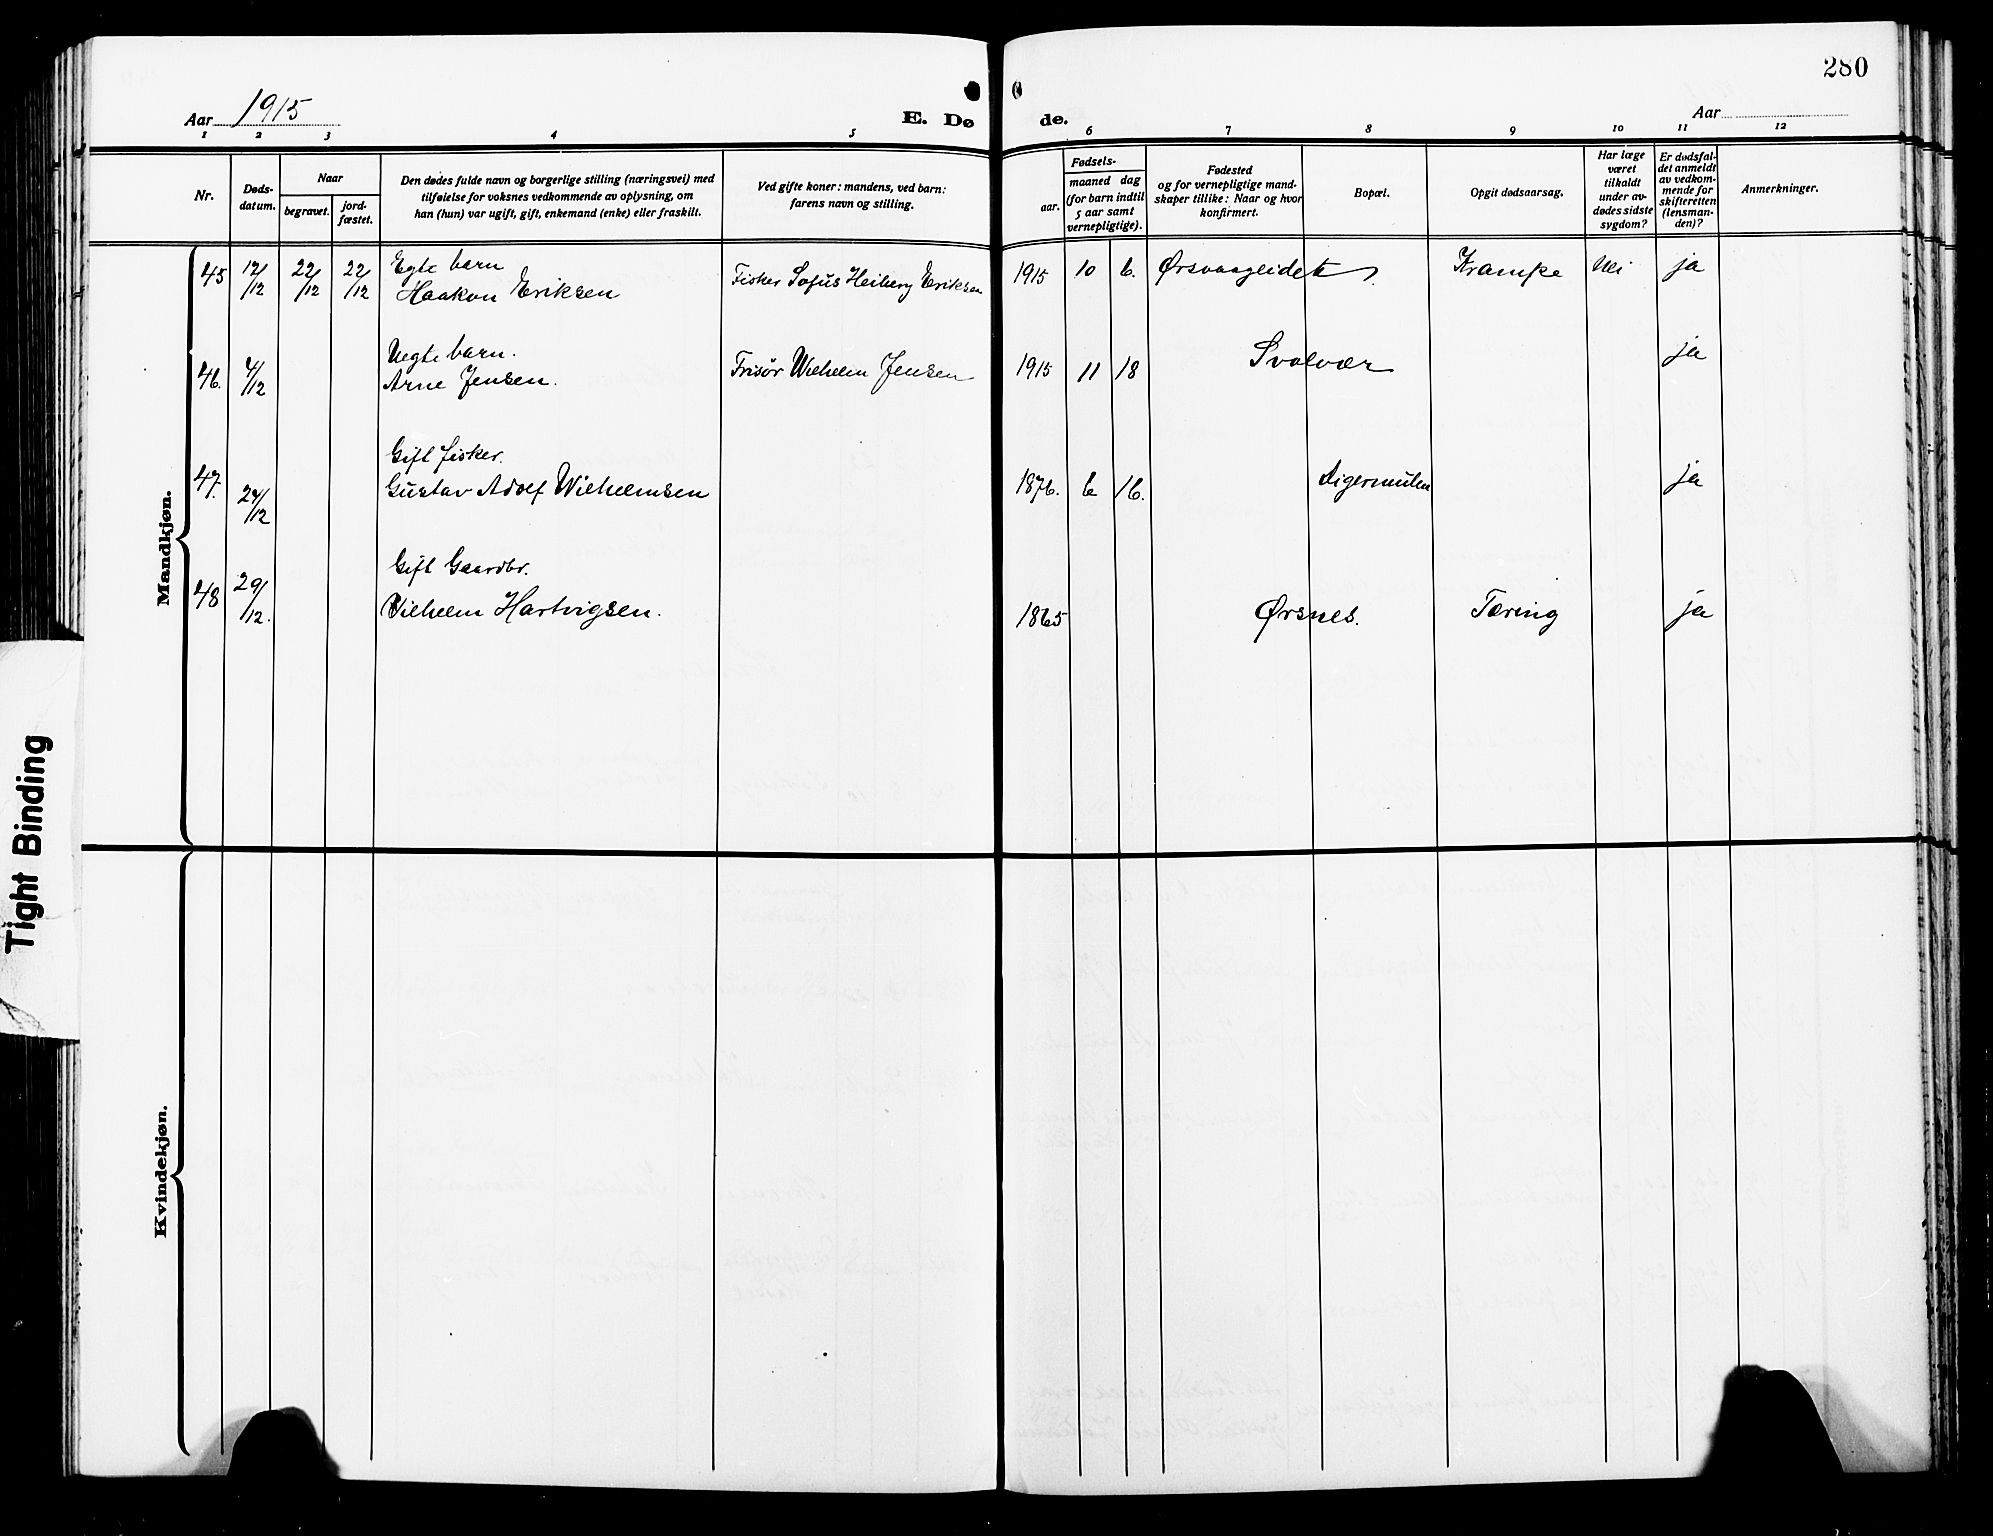 280
Aar 1915
E. Dø de.
Aar
1 2 3 4 5 6 7 8 9 10 11 12
Nr.
Døds-
datum.
Naar
begravet.
jord-
fæstet.
Den dødes fulde navn og borgerlige stilling (næringsvei) med
tilføielse for voksnes vedkommende av oplysning, om
han (hun) var ugift, gift, enkemand (enke) eller fraskilt.
Ved gifte koner: mandens, ved barn:
farens navn og stilling.
Fødsels-
aar.
maaned dag
(for barn indtil
5 aar samt
vernepligtige).
Fødested
og for vernepligtige mand-
skaper tillike: Naar og hvor
konfirmert.
Bopæl.
Opgit dødsaarsag.
Har læge
været
tilkaldt
under av-
dødes sidste
sygdom?
Er dødsfal-
det anmeldt
av vedkom-
mende for
skifteretten
(lensman-
den)?
Anmerkninger.
Mandkjøn.
45 12/12 22/12 22/12 Egte barn
Haakon Eriksen Fisker Sofus Heiberg Eriksen 1915 10 6. Ørsvaageidet Krampe Nei ja
46. 4/12 Uegte barn.
Arne Jensen. Frisør Wilhelm Jensen 1915 11 18 Svolvær ja
47. 24/12 Gift fisker.
Gustav Adolf Wilhelmsen 1876. 6 16. Digermulen ja
48 29/12. Gift Gaardbr.
Vilhelm Hartvigsen. 1865 Ørsnes. Tæring ja
Kvindekjøn.
Tight Binding